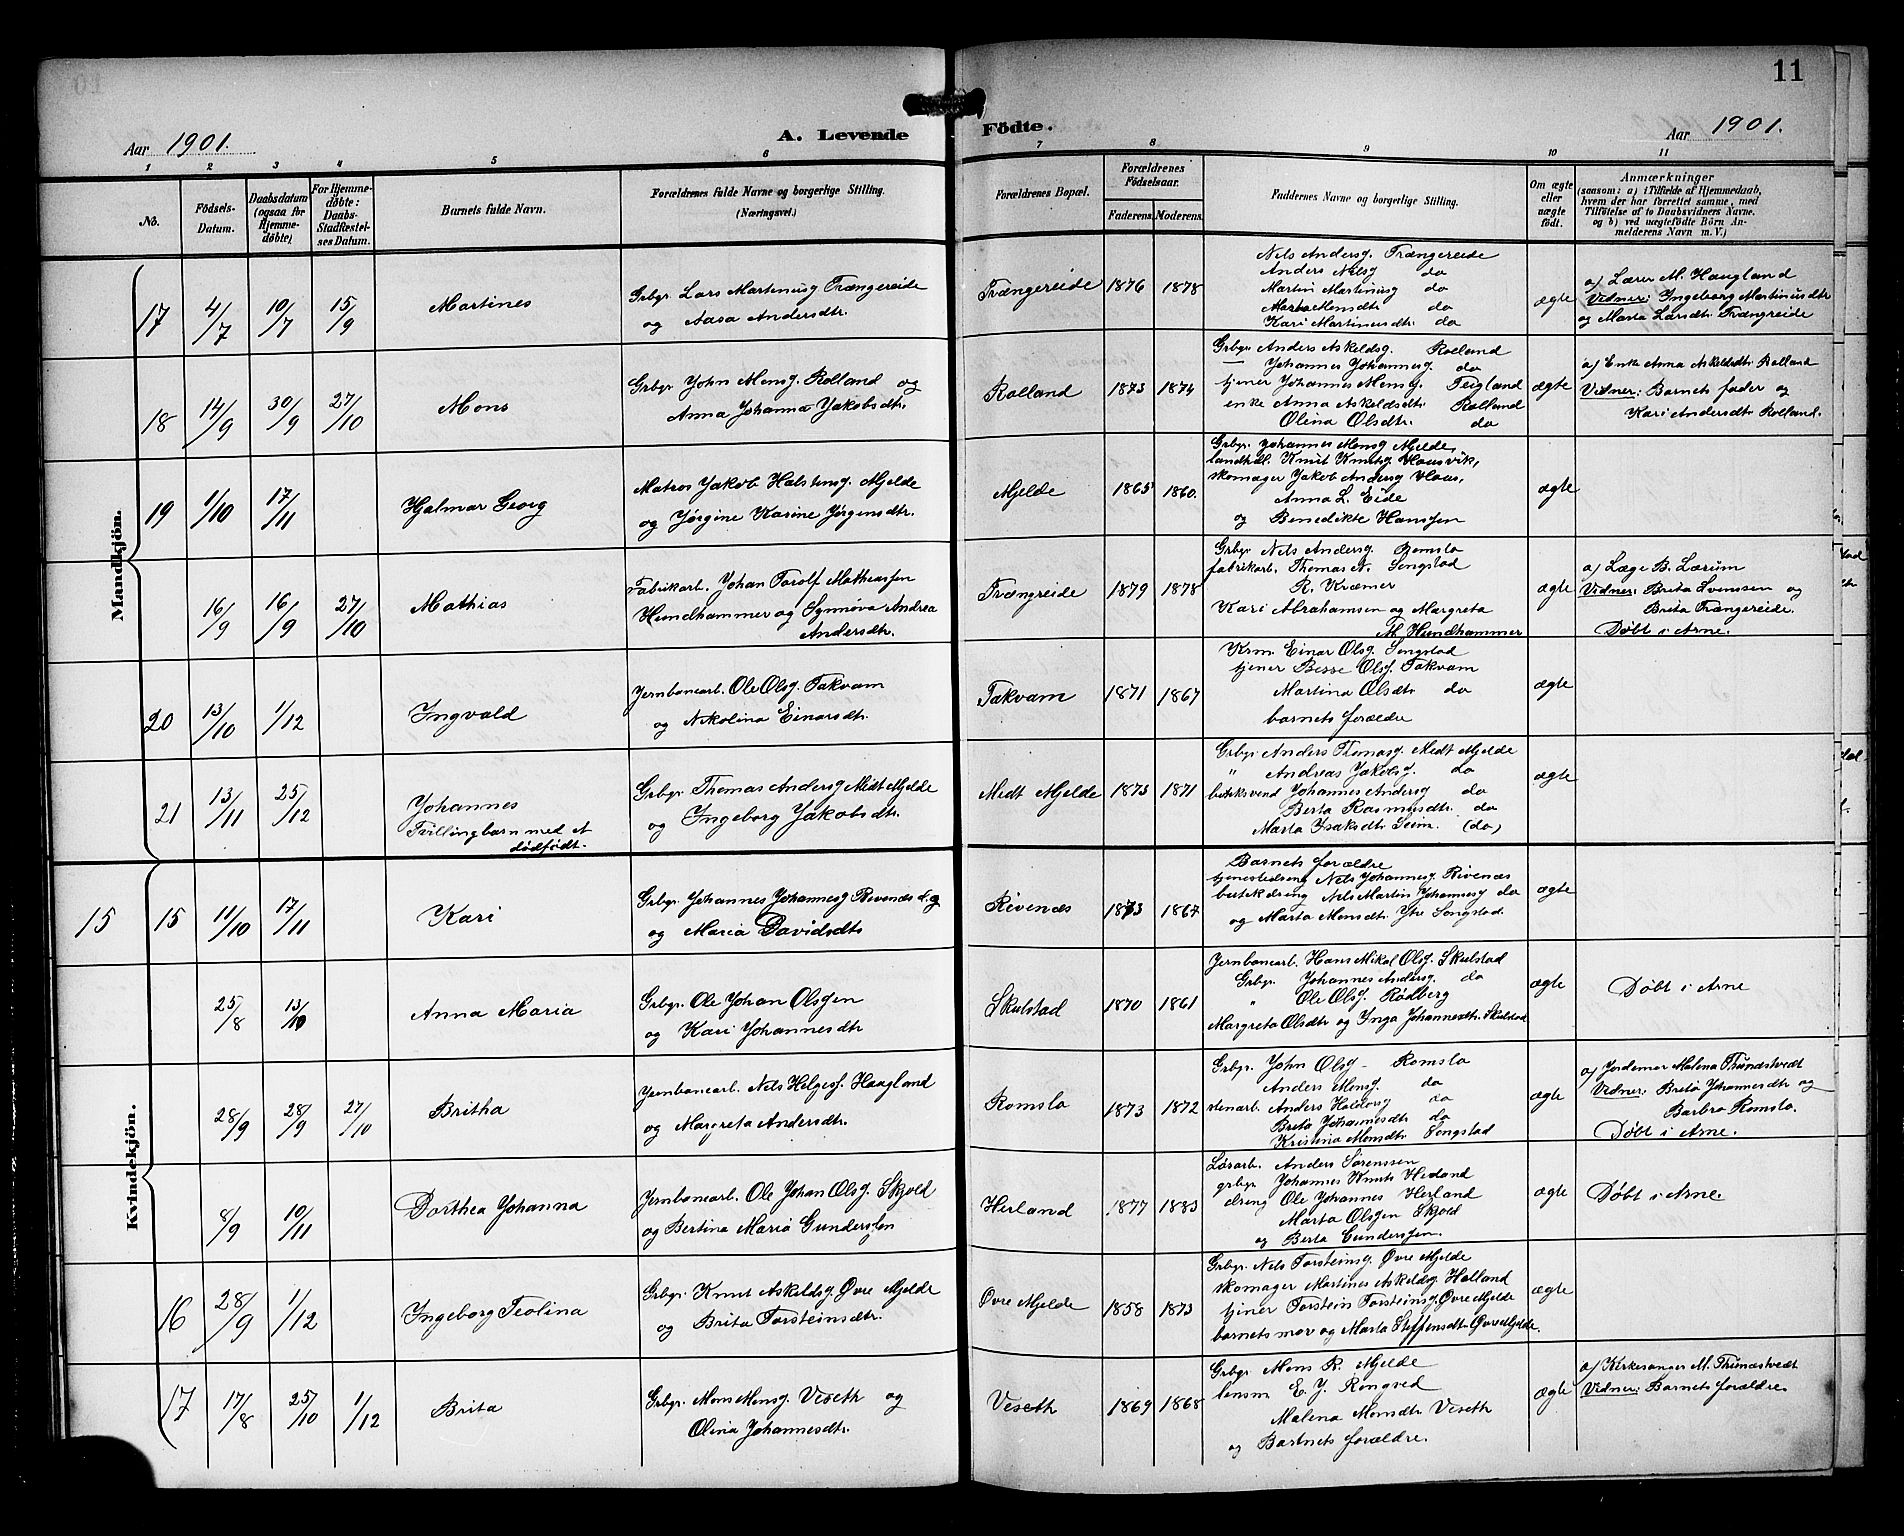 11
Aar 1901.
A. Levende Födte.
Aar 1901.
1 2 3 4 5 6 7 8 9 10 11
No.
Födsels-Datum.
Daabsdatum (ogsaa for Hjemme-döbte)
For Hjemme-döbte: Daabs-Stadfæstel-ses Datum.
Barnets fulde Navn.
Forældrenes fulde Navne og borgerlige Stilling.
(Næringsvei.)
Forældrenes Bopæl.
Forældrenes Födselsaar.
Faderens. Moderens.
Faddernes Navne og borgerlige Stilling.
Om ægte eller uægte födt.
Anmærkninger
(saasom: a) i Tilfælde af Hjemmedaab,
hvem der har forrettet samme, med
Tilföielse af to Daabsvidners Navne.
og b) ved uægtefödte Börn An-
melderens Navn m. V.)
Mandkjön.
17 4/7 10/7 15/9
Martines
Grbgr. Lars Martinusg Trængereide
og Aasa Andersdtr.
Trængereide 1876 1878
Nels Andersg. Trængereide
Anders Nelsg do
Martin Martinusg do
Marta Monsdtr. do
Kari Martinusdtr. do
ægte
a) Lærer M. Haugland
Vidner: Ingeborg Martinusdtr
og Marta Larsdtr. Trængreide
18 14/9 30/9 27/10
Mons
Grbgr. John Monsg. Rolland og
Anna Johanna Jakobsdtr.
Rolland 1873 1874
Grbgr. Anders Askeldsg. Rolland
Johannes Johannesg do
tjener Johannes Monsg. Teigland
enke Anna Askeldsdtr. Rolland
Olina Olsdtr. do
ægte
a) Enke Anna Askeldsdtr. Rolland
Vidner: Barnets fader og
Kari Andersdtr. Rolland.
19 1/10 17/11
Hjalmar Georg
Matros Jakob Halstensg. Mjelde
og Jørgine Karine Jørgensdtr.
Mjelde 1865 1860.
Grbgr. Johannes Monsg Mjelde,
landhdl. Knut Knutsg. Hausvik,
skomager Jakob Andersg Haus,
Anna L. Eide
og Benedikte Hanssen
ægte
16/9 16/9 27/10
Mathias
Fabrikarb. Johan Torolf Mathiassen
Hundhammer og Synnøva Andrea
Andersdtr.
Trængreide 1879 1878
Grbgr Nels Andersg. Romslo
fabrikarb. Thomas N. Songstad
R. Kræmer
Kari Abrahamsen og Margreta
M. Hundhammer
ægte
a) Læge B. Lærum
Vidner: Brita Svenssen og
Brita Trængereide.
Døbt i Arne.
20 13/10 1/12
Ingvald
Jernbanearb. Ole Olsg. Takvam
og Nikolina Einarsdtr.
Takvam 1871 1867
Krm. Einar Olsg. Songstad
tjener Besse Olsg. Takvam
Martina Olsdtr. do
barnets forældre
ægte
21 13/11 25/12
Johannes
Tvillingbarn med et
dødfødt.
Grbgr. Thomas Andersg Midt Mjelde
og Ingeborg Jakobsdtr.
Midt Mjelde 1873 1871
Grbgr Anders Thomasg. Midt Mjelde
" Andreas Jakobsg. do
Johannes Andersg do
Berta Rasmusdtr. do
Marta Isaksdtr Seim. (do)
ægte
Kvindekjön.
15 15 11/10 17/11
Kari
Grbgr. Johannes Johannesg Rivenæs
og Maria Davidsdtr
Rivenæs 1873 1867
Barnets forældre
tjenestedreng Nels Johannesg. Rivenæs
Nels Martin Johannesg do
og Marta Monsdtr. Ytre Songstad.
ægte
25/8 13/10
Anna Maria
Grbgr. Ole Johan Olsgen
og Kari Johannesdtr
Skulstad 1870 1861
Jernbanearb. Hans Mikal Olsg. Skulstad
Grbgr. Johannes Andersg. do
" Ole Olsg. Rødberg
Margreta Olsdtr og Inga Johannesdtr. Skulstad
ægte
Døbt i Arne
28/9 28/9 27/10
Britha
Jernbanearb. Nels Helgesg. Haagland
og Margreta Andersdtr.
Romslo 1873 1872
Grbgr. John Olsg - Romslo
Anders Monsg. do
stenarb. Anders Haldorsg do
Brita Johannesdtr do
Kristina Monsdtr. Songstad
ægte
a) Jordemor Malena Thunæstvedt
Vidner: Brita Johannesdtr og
Barbro Romslo.
Døbt i Arne.
8/9 10/11
Dorthea Johanna
Jernbanearb. Ole Johan Olsg. Skjold
og Bertina Maria Gunderssen
Herland 1877 1883
Løsarb. Anders Sørenssen
grbgr. Johannes Knuts Herland
dreng Ole Johannes Herland
Marta Olsgen Skjold
og Berta Gunderssen.
ægte
Døbt i Arne.
16 28/9 1/12
Ingeborg Teolina
Grbgr. Knut Askeldsg Øvre Mjelde
og Brita Torsteinsdtr.
Øvre Mjelde 1858 1873
Grbgr. Nels Torsteinsg. Øvre Mjelde
skomager Martines Askeldsg Holland
tjener Torstein Torsteinsg. Øvre Mjelde
barnets mor og Marta Steffensdtr. Øvre Mjelde.
ægte
17 17/8 25/10 1/12
Brita
Grbgr. Mons Monsg. Veseth og
Olina Johannesdtr.
Veseth 1869 1868
Grbgr Mons R. Mjelde
lensm E. J. Rongved
Malena Monsdtr. Veseth
og Bartnets forældre.
ægte
a) Kirkesanger M. Thunæstvedt
Vidner: Barnets forældre